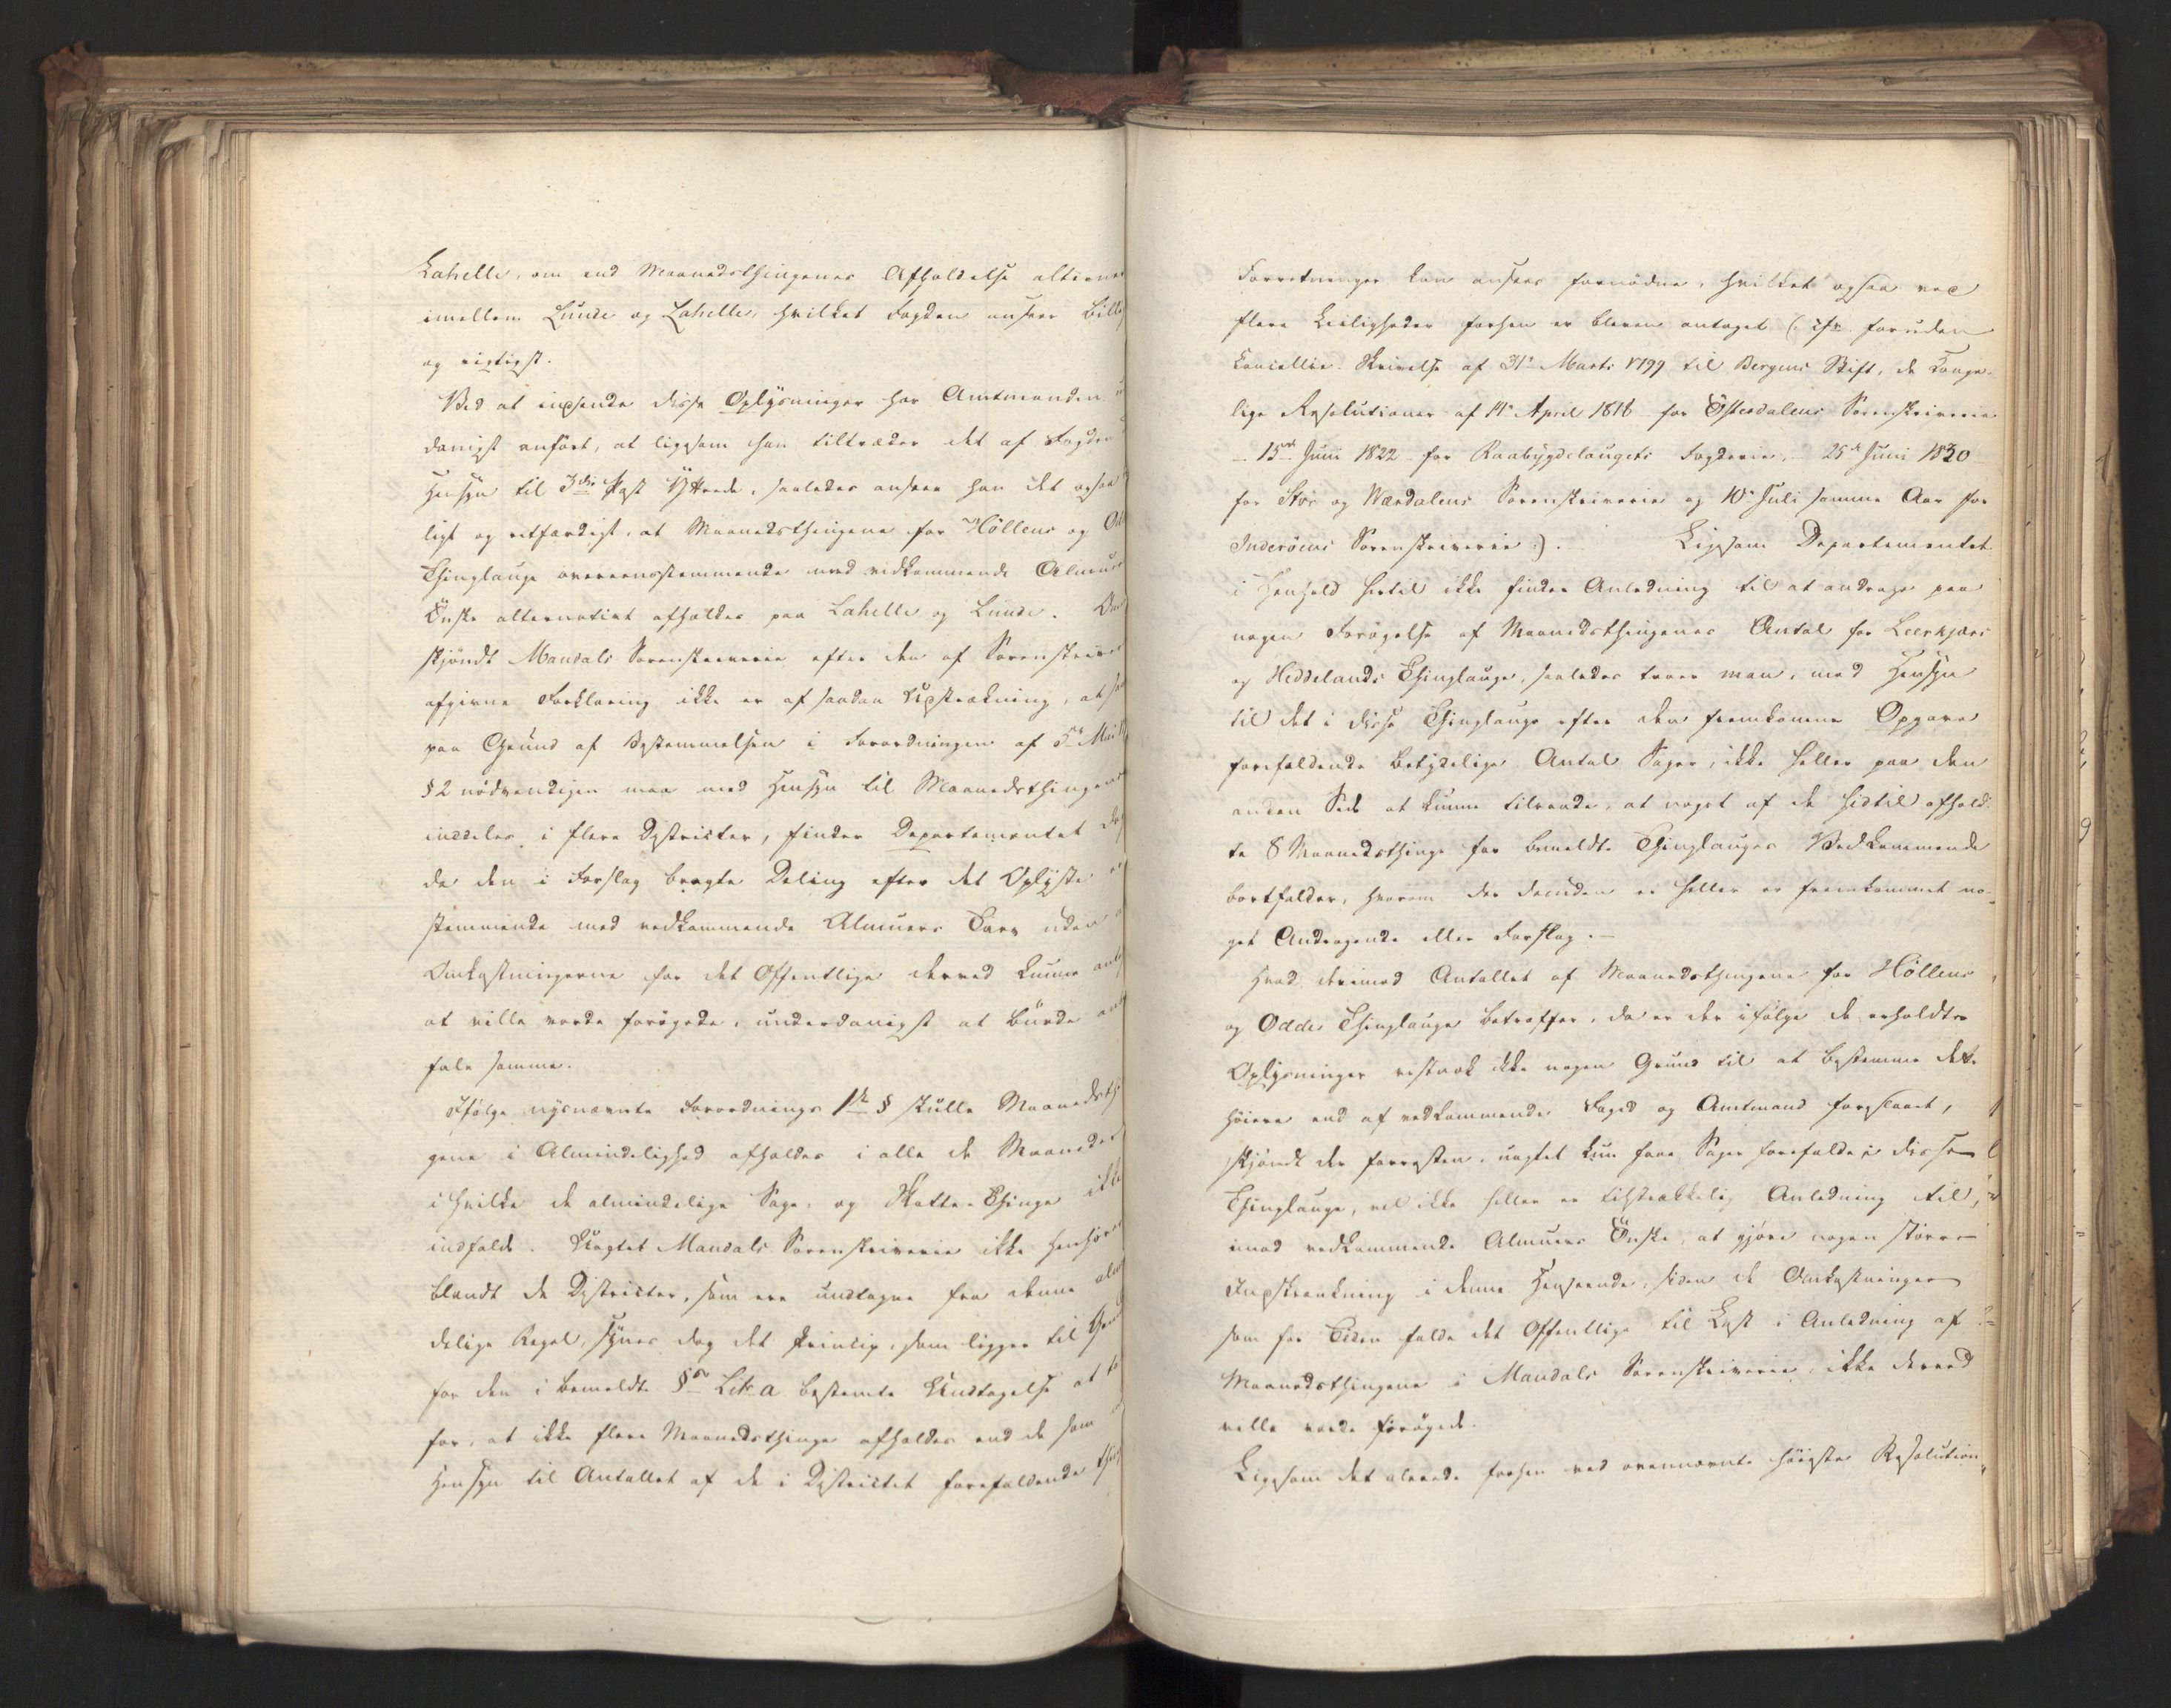 Lahelle, om end Maanedsthingenes Afholdelse alterne
imellem Lunde og Lahelle, hvilket Fogden anseer billig
og rigtigst.
Ved at indsende disse Oplysninger har Amtmanden
danigst anført, at ligesom han tiltræder det af Fogden
Hensyn til 3die Post Yttrede, saaledes anseer han det ogsaa
ligt og retfærdigt, at Maanedsthingene for Höllens og Od
Thinglauge overeensstemmende med vedkommende Almues
Ønske alternativt afholdes paa Lahelle og Lunde.
skjøndt Mandals Sorenskriverie efter den af Sorenskriver
afgivne Forklaring ikke er af saadan Udstrækning, at
paa Grund af Bestemmelsen i Forordningen af 5te Mai
§ 2 nødvendigen maa med Hensyn til Maanedsthingene
inddeles i flere Districter, finder Departementet dog
da den i Forslag bragte Deling efter det Oplyste er
stemmende med vedkommende Almues Tarv uden
Omkostningerne for det Offentlige derved kunne anta
at ville vorde forøgede, underdanigst at burde an
fale samme.
Ifølge nysnævnte Forordnings 1ste § skulle Maanedsth
gene i Almindelighed afholdes i alle de Maaneder
i hvilke de almindelige Sage- og Skatte-Thinge ikke
indfalde. Uagtet Mandals Sorenskriverie ikke henhører
blandt de Districter, som ere undtagne fra denne alm
delige Regel, synes dog det Princip, som ligger til Grund
for den i bemeldte §s Litr a bestemte Undtagelse at
for, at ikke flere Maanedsthinge afholdes end de som
Hensyn til Antallet af de i Districtet forefaldende Thing
Forretninger kan ansees fornødne, hvilket ogsaa ved
flere Leiligheder forhen er bleven antaget (: cfr. foruden
Cancellie-Skrivelse af 31te Marts 1799 til Bergens Stift, de Konge-
lige Resolutioner af 14de April 1818 for Østerdalens Sorenskriverie
- 15de Juni 1822 for Raabygdelaugets Fogderie, - 25de Juni 1830
for Stør og Værdalens Sorenskriverie og 10de Juli samme Aar for
Inderöens Sorenskriverie :). Ligesom Departementet
i Henhold hertil ikke finder Anledning til at andrage paa
nogen Forøgelse af Maanedsthingenes Antal for Leerkjærs
og Heddelands Thinglauge, saaledes troer man, med Hensyn
til det i disse Thinglauge efter den fremkomne Opgave
forefaldende betydelige Antal Sager, ikke heller paa den
anden Side at kunne tilraade, at noget af de hidtil afhold-
te 8 Maanedsthinge for bemeldte Thinglauges Vedkommende
bortfalder, hvorom der desuden ei heller er fremkommet no-
get Andragende eller Forslag. -
Hvad derimod Antallet af Maanedsthingene for Höllens
og Oddes Thinglauge betræffer, da er der ifølge de erholdte
Oplysninger vistnok ikke nogen Grund til at bestemme dette
høiere end af vedkommende Foged og Amtmand foreslaaet,
skjøndt der forresten, uagtet kun faae Sager forefalde i disse
Thinglauge, vel ikke heller er tilstrækkelig Anledning til,
imod vedkommende Almues Ønske, at gjøre nogen større
Indskrænkning i denne Henseende, siden de Omkostninger
som for Tiden falde det Offentlige til Last i Anledning af
Maanedsthingene i Mandals Sorenskriverie, ikke derved
ville vorde forøgede.
Ligesom det allerede forhen ved ovennævnte høieste Resolution